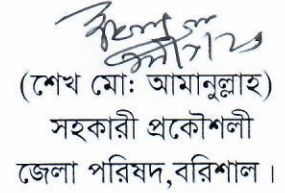 (শেখ মো: আমানুল্লাহ)
সহকারী প্রকৌশলী
জেলা পরিষদ,বরিশাল।